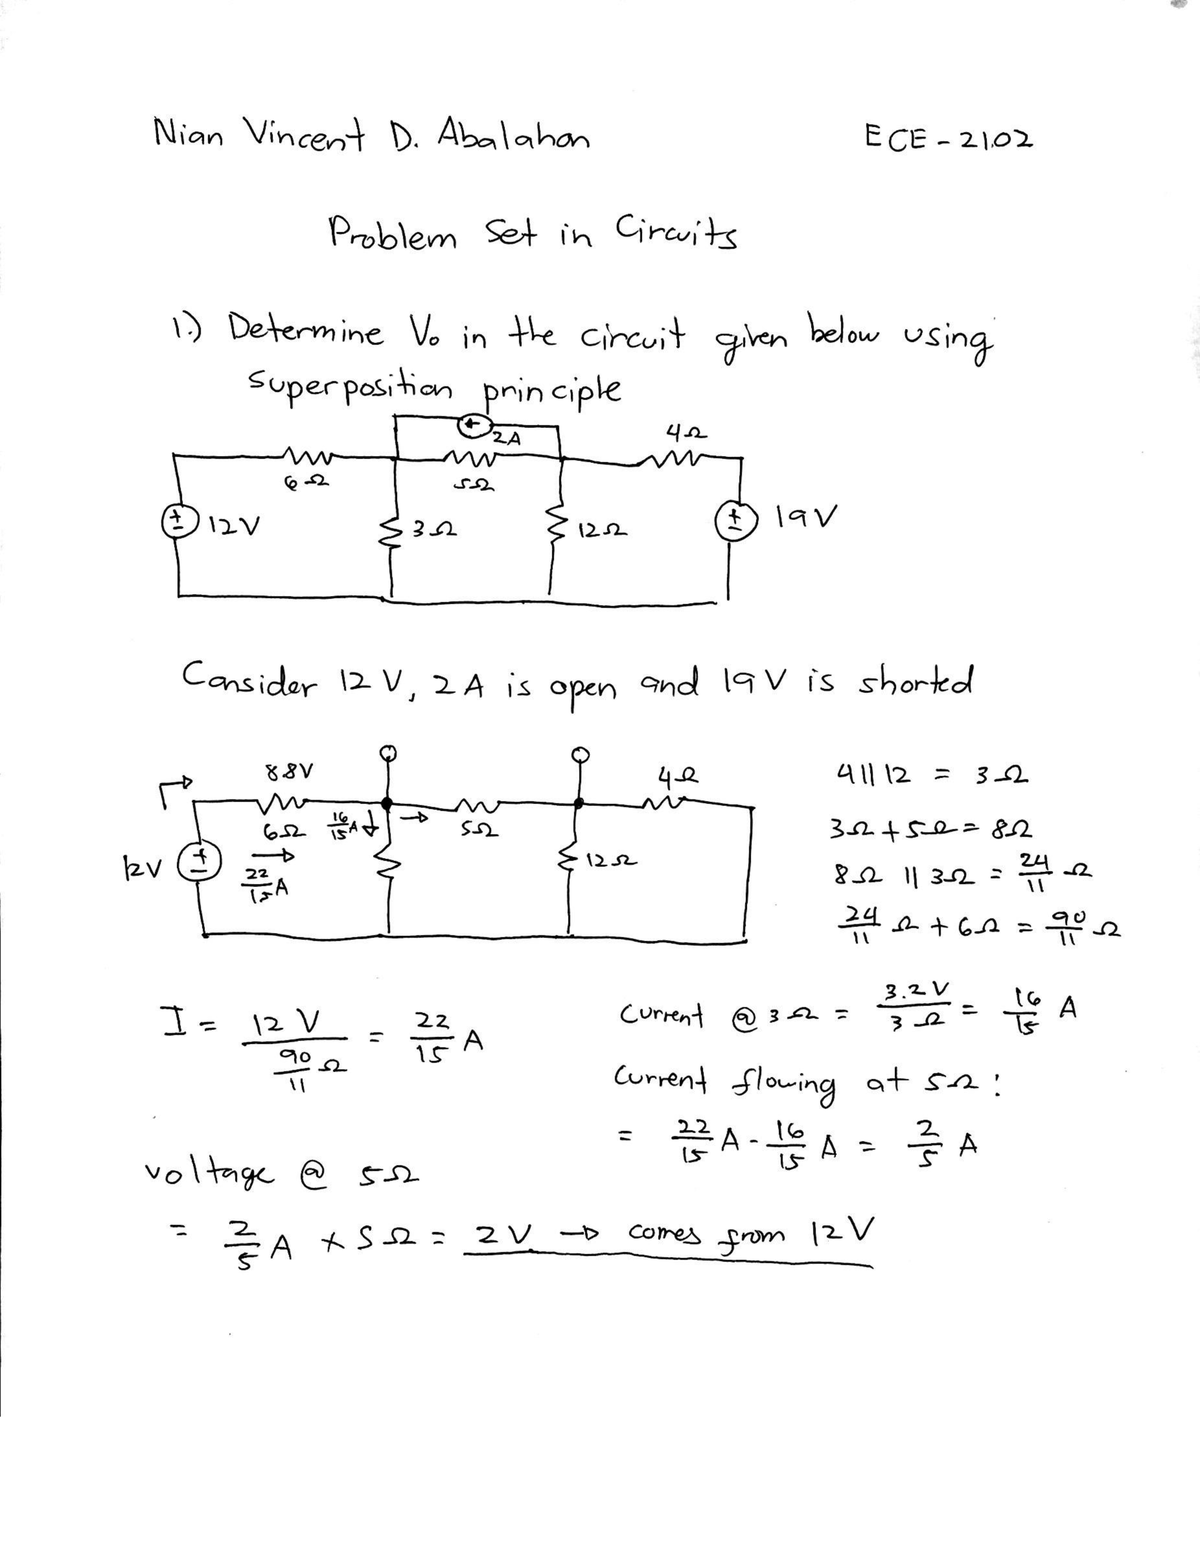 Nian Vincent D. Abalahon
ECE - 2102
Problem Set in Circuits
1.) Determine Vo in the circuit given below using
superposition principle
2A
4Ω
6Ω
5Ω
12V
3Ω
12Ω
19V
Consider 12 V, 2 A is open and 19 V is shorted
8.8V
4Ω
4 || 12 = 3Ω
6Ω
16/15 A
5Ω
3Ω + 5Ω = 8Ω
12V
22/15 A
12Ω
8Ω || 3Ω = 24/11 Ω
24/11 Ω + 6Ω = 90/11 Ω
I = 12 V / 90/11 Ω = 22/15 A
Current @ 3Ω = 3.2 V / 3Ω = 16/15 A
Current flowing at 5Ω :
= 22/15 A - 16/15 A = 2/5 A
voltage @ 5Ω
= 2/5 A x 5Ω = 2 V → comes from 12 V